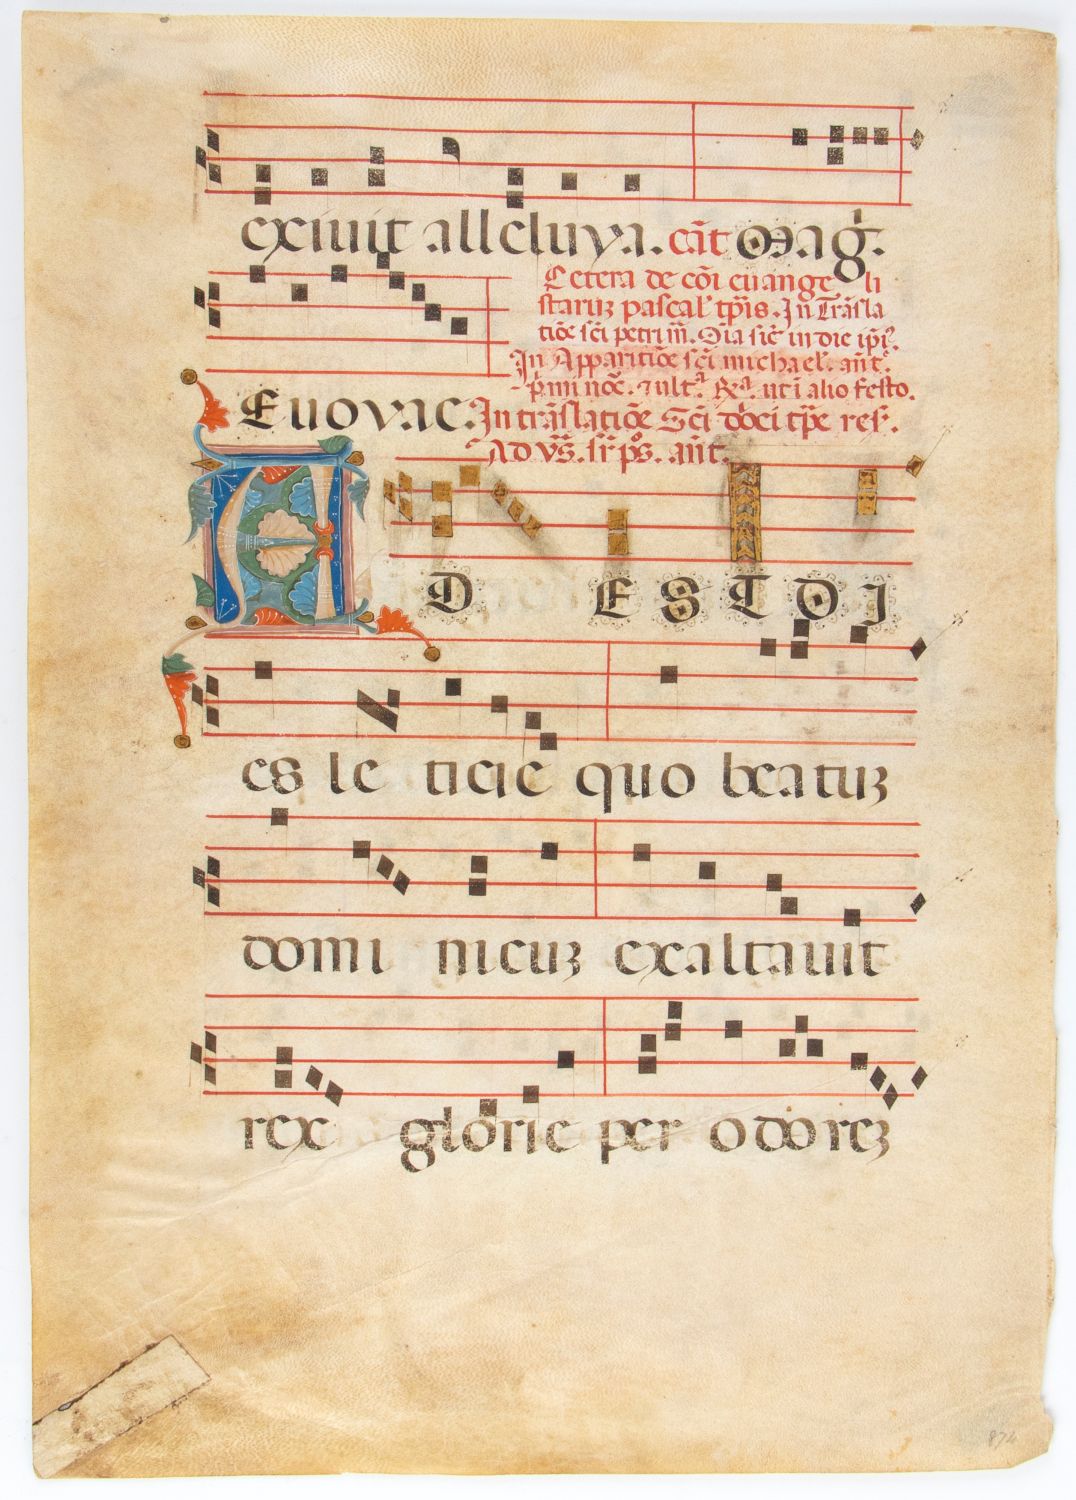 exiuit alleluya. cãt Mag̃.
Cetera de cõi euangeli
staruʒ pascal' tp̃is. In Trãsla
tiõe sc̃i petri m̃. Oĩa sic̃ in die ip̃i'.
In Apparitiõe sc̃i michael'. añt.
p̃mi noc̃. ⁊ ult.ᵃ ℞ᵃ ut ĩ alio festo.
Euovac. In trãslatiõe Sc̃i dõci tp̃e res'.
Ad vs̃. sr̃ põs. añt.
AD EST DI
es le ticie quo beatuʒ
domi nicuʒ exaltauit
rex glorie per odoreʒ
874